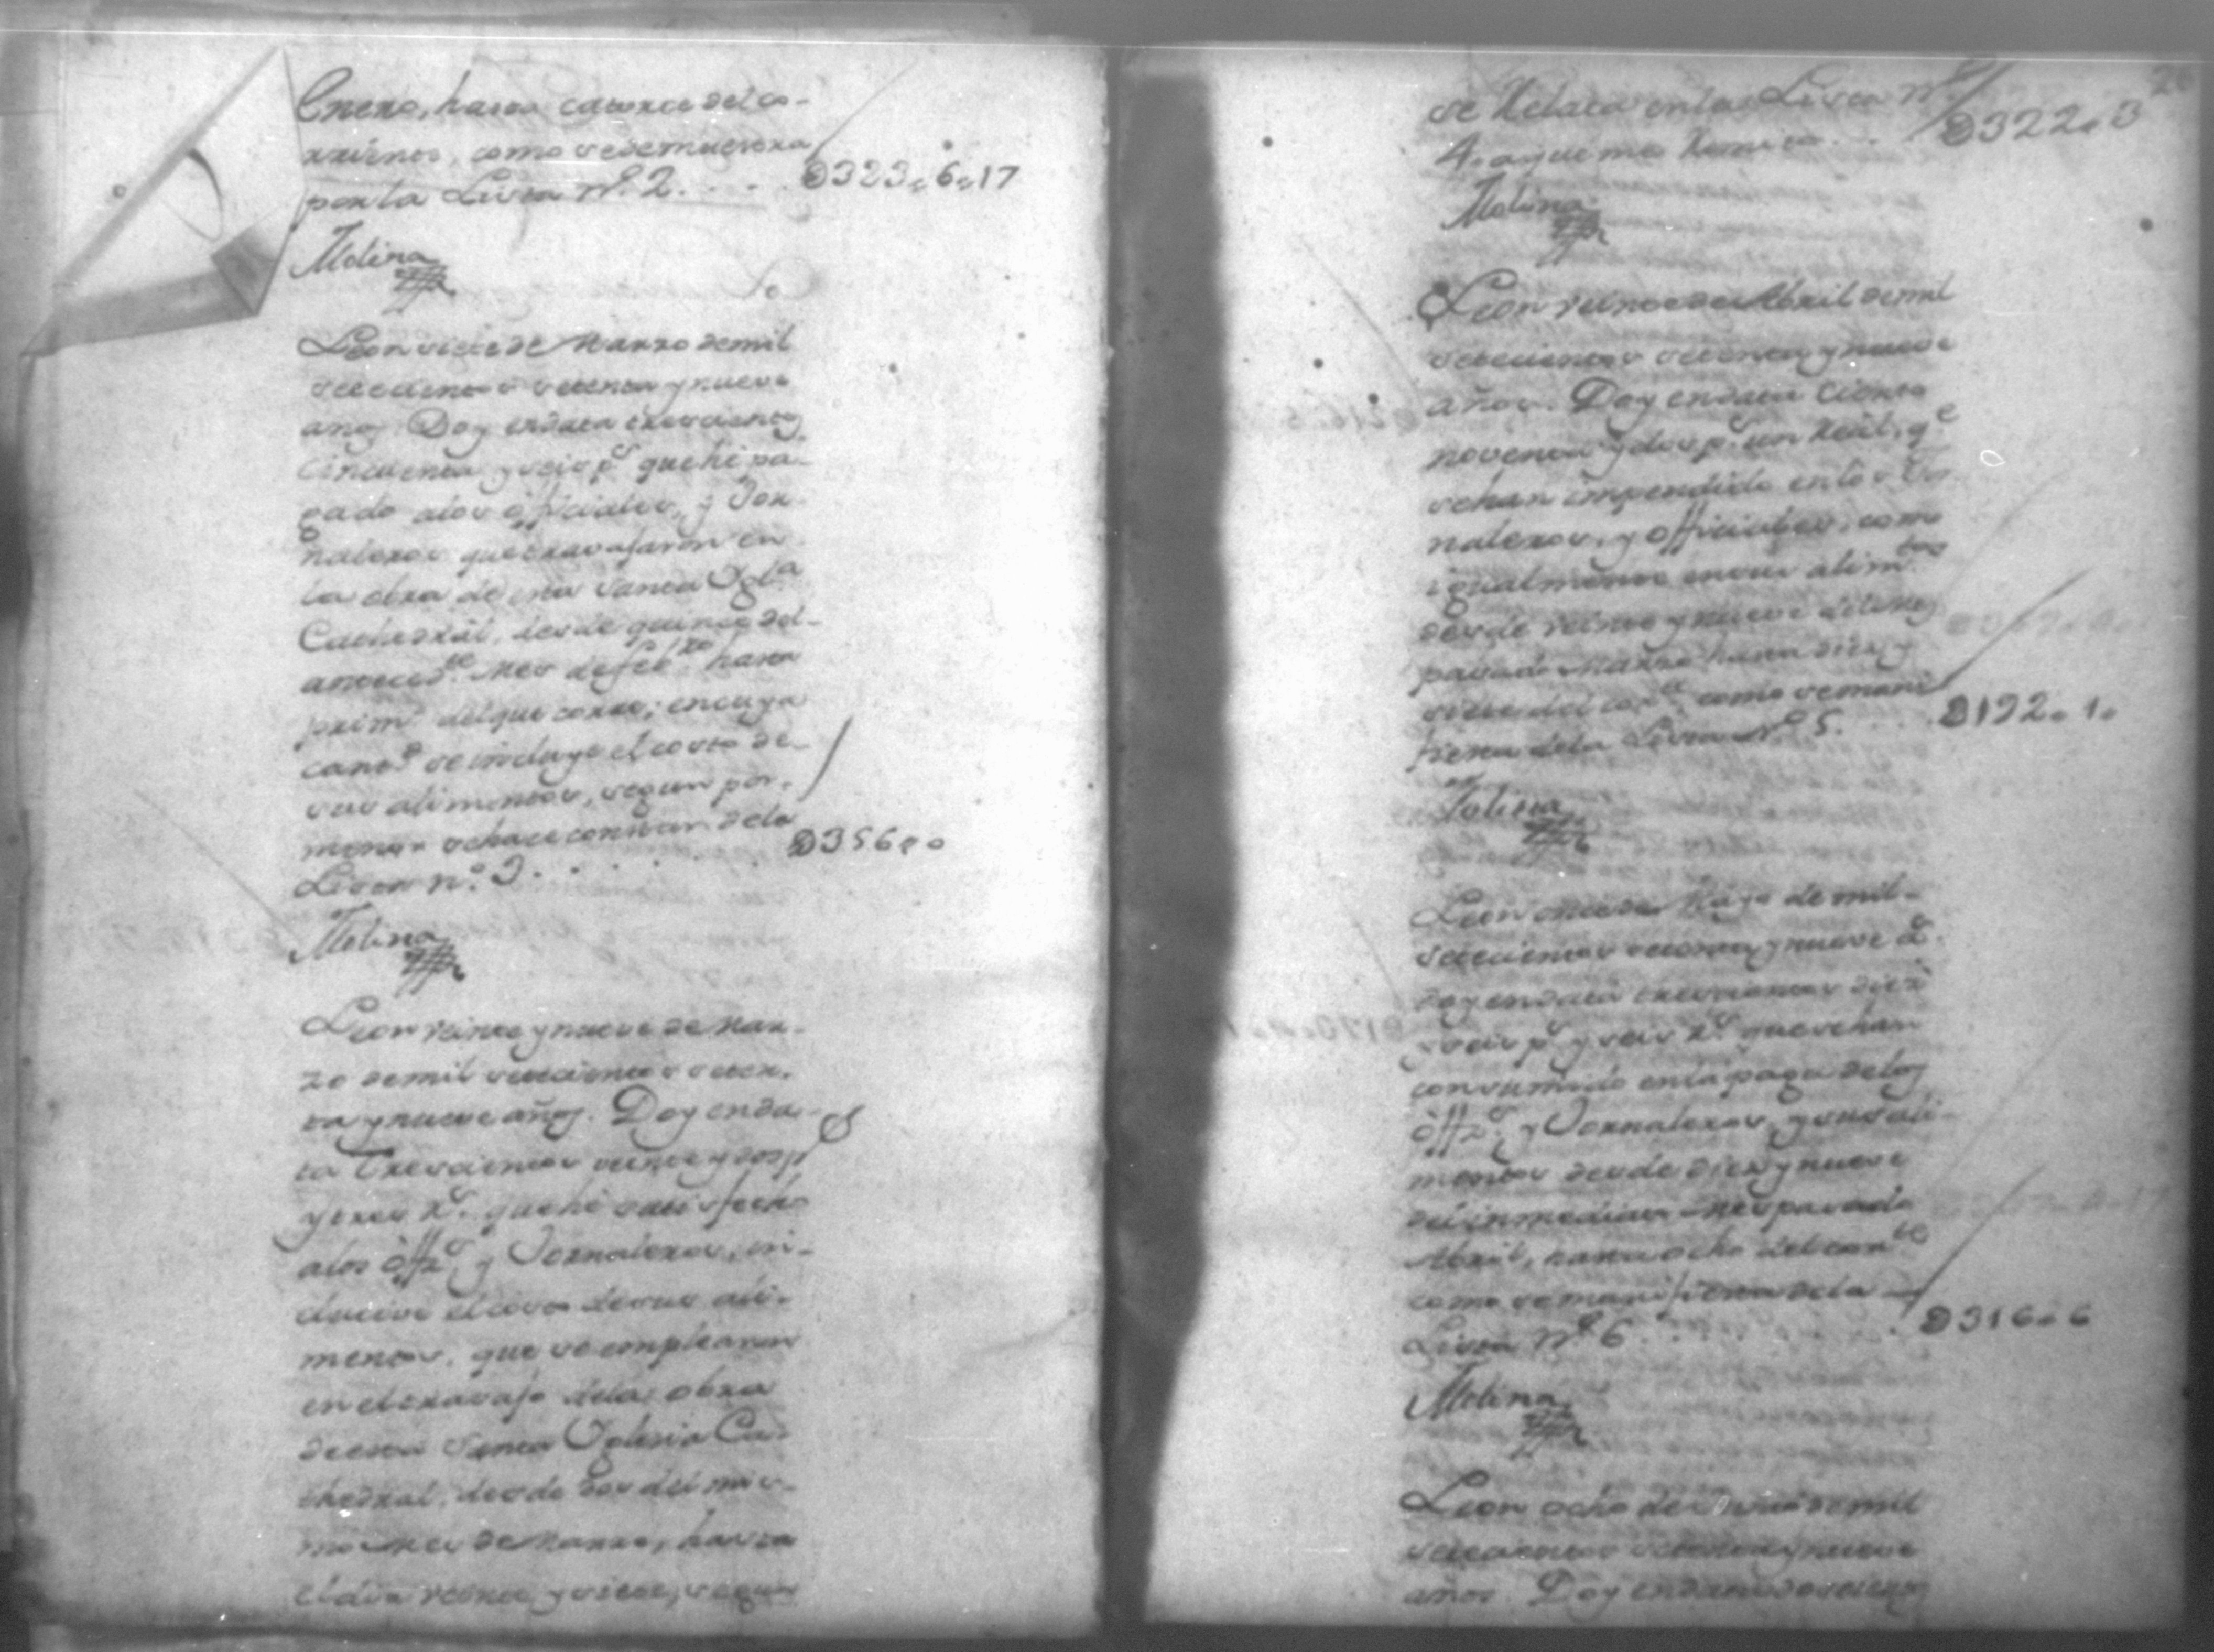 Enero, hasta catorce del co-
rriente, como se demuestra
por la Lista nº. 2. . . . @323,,6,,17
Molina
Leon siete de Marzo de mil
setecientos setenta y nueve
años. Doy en data trescientos
cincuenta y seis ps. que hé pa-
gado a los officiales, y Jor-
naleros que travajaron en
la obra de esta Santa Igla.
Cathedral, desde quince del
anteced.te Mes de feb.ro hasta
prim.o del que corre; en cuya
cant.d se incluye el costo de
sus alimentos, segun por
menor se hace constar de la
Lista nº. 3. . . . . . @356,,0
Molina
Leon veinte y nueve de Mar-
zo de mil setecientos seten-
ta y nueve años. Doy en da-
ta trescientos veinte y dos p
y tres rs. que hé satisfecho
a los offs. y Jornaleros, in-
clusive el costo de sus ali-
mentos, que se emplearon
en el travajo de la obra
de esta Santa Iglesia Ca-
thedral, desde dos del mis-
mo Mes de Marzo, hasta
el dia veinte y siete, segun
20
se relata en la Lista nº
4. a que me remito. . . @322,,3
Molina
Leon veinte de Abril de mil
setecientos setenta y nueve
años. Doy en data Ciento
noventa y dos ps. un real, qe
se han impendido en los Jor-
naleros, y officiales, como
igualmente en sus alim.tos
desde veinte y nueve del mes
pasado Marzo hasta diez y
siete del corr.te como se mani-
fiesta de la Lista nº. 5. . . . @192,,1,,
Molina
Leon once de Mayo de mil
setecientos setenta y nueve as.
Doy en data trescientos diez
y seis ps. y seis rs. que se han
consumido en la paga de los
offs. y Jornaleros, y sus ali-
mentos desde diez y nueve
del inmediato Mes pasado
Abril, hasta ocho del corr.te
como se manifiesta de la
Lista nº 6. . . . . @316,,6
Molina
Leon ocho de Junio de mil
setecientos setenta y nueve
años. Doy en data doscientos